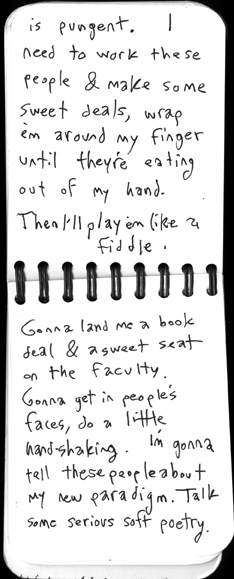 is pungent. I
need to work these
people & make some
sweet deals, wrap
em around my finger
until they're eating
out of my hand.
Then I'll play em like a
fiddle.
Gonna land me a book
deal & a sweet seat
on the faculty.
Gonna get in people's
faces, do a little
hand-shaking. Im gonna
tell these people about
my new paradigm. Talk
some serious soft poetry.